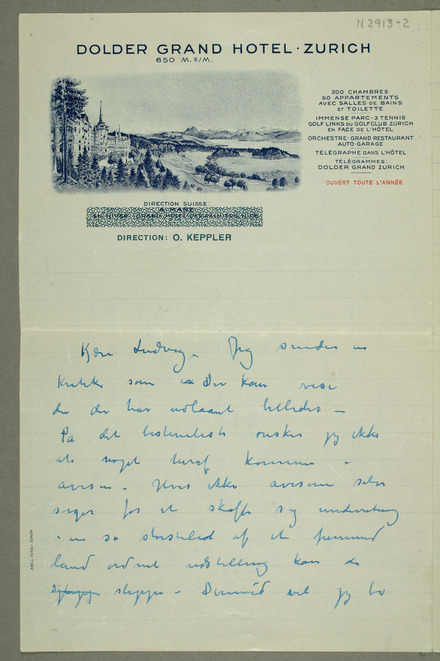 N 2913-2
DOLDER GRAND HOTEL · ZURICH
650 M. S/M.
200 CHAMBRES
50 APPARTEMENTS
AVEC SALLES DE BAINS
ET TOILETTE
IMMENSE PARC - 3 TENNIS
GOLF LINKS DU GOLFCLUB ZURICH
EN FACE DE L'HÔTEL
ORCHESTRE - GRAND RESTAURANT
AUTO-GARAGE
TÉLÉGRAPHE DANS L'HÔTEL
TÉLÉGRAMMES:
DOLDER GRAND ZURICH
OUVERT TOUTE L'ANNÉE
DIRECTION SUISSE:
DIRECTION: O. KEPPLER
Kære Ludvig – Jeg sender en
kritik som Du kan vise
der har utlaant billeder –
På det bestemteste ønsker jeg ikke
at noget herof kommer i
avisen – Hvis ikke aviserne selv
sørger for at skaffe sig underretning
om en så storstilet af et fremmed
land ordnet utstilling kan de
slippe – Dermed vil jeg